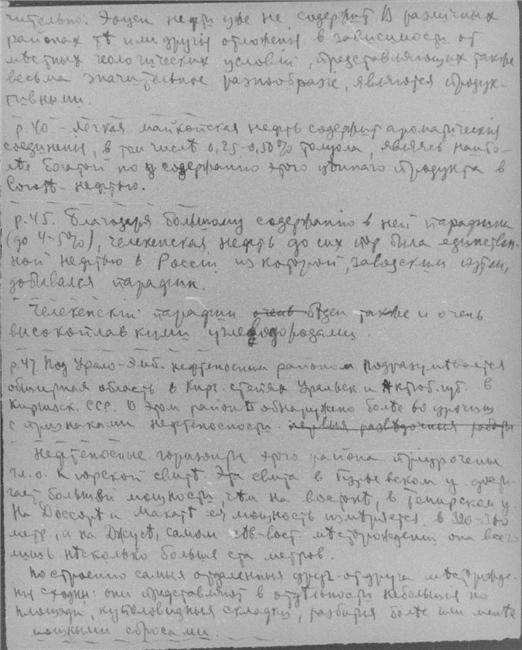 чительно. Эоцен нефти уже не содержит. В различных
районах тѣ или другия отложения в зависимости от
мѣстных геологических условий, представляющих также
весьма значительное разнообразие, являются продук-
тивными.
р. 40 - лёгкая майкопская нефть содержит ароматическия
соединения, в том числѣ 0,25-0,50% толуола, являясь наибо-
лѣе богатой по содержанию этого цѣннаго продукта в
нефтью.
р. 45. Благодаря большому содержанию в ней парафина
(до 4-5%), челекенская нефть до сих пор была единствен-
ной нефтью в России из которой, заводским путём,
добывался парафин.
Челекенский парафин очень бѣден также и очень
высокоплавкими углеводородами.
р. 47 Под Урало-Эмб. нефтеносным районом подразумѣвается
обширная область в Кирг. степях Уральск. и Актюб. губ. в
Киргизск. ССР. В этом районѣ обнаружено болѣе 80 урочищ
с признаками нефтеносности. первыя развѣдочныя
Нефтеносные горизонты этого района приурочены
гл. о. к юрской свитѣ. Эта свита в Гурьевском у. дости-
гает большей мощности чѣм на востокѣ, в Темирском у.
На Доссорѣ и Макатѣ её мощность измѣряется в
метр., а на Джусѣ, самом сѣв-вост. мѣсторождении она всего
лишь нѣсколько больше ста метров.
По строению самыя отдаленныя друг от друга мѣсторожде-
ния сходны: они представляют в отдѣльности небольшия по
площади, куполовидныя складки, разбитыя болѣе или менѣе
мощными сбросами.